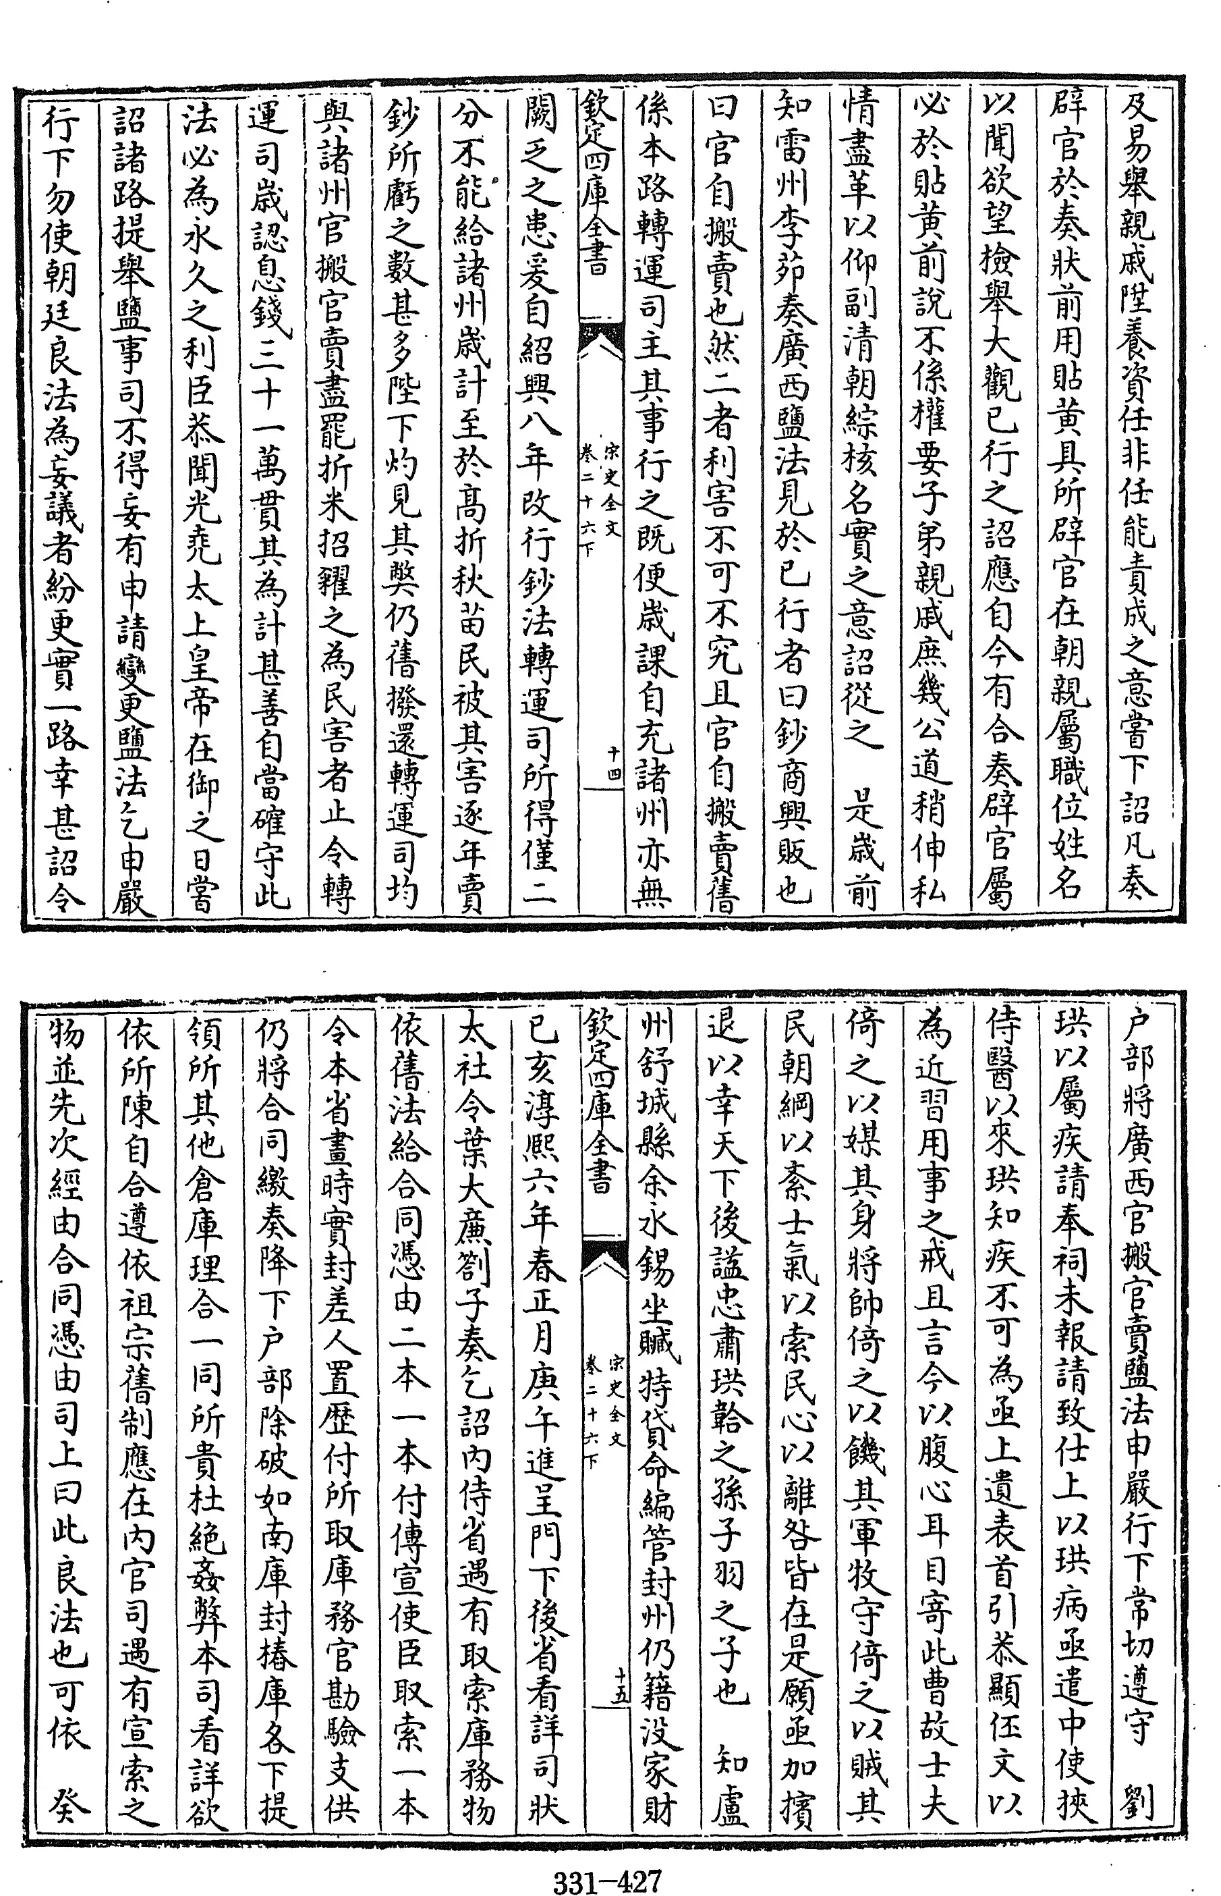 及易舉親戚陞養資任非任能責成之意嘗下詔凡奏
辟官於奏狀前用貼黄具所辟官在朝親屬職位姓名
以聞欲望檢舉大觀已行之詔應自今有合奏辟官屬
必於貼黄前說不係權要子弟親戚庶幾公道稍伸私
情盡革以仰副清朝綜核名實之意詔從之　是歲前
知雷州李茆奏廣西鹽法見於已行者曰鈔商興販也
曰官自搬賣也然二者利害不可不究且官自搬賣舊
係本路轉運司主其事行之既便歲課自充諸州亦無
欽定四庫全書
宋史全文
卷二十六下
十四
闕乏之患爰自紹興八年改行鈔法轉運司所得僅二
分不能給諸州歲計至於高折秋苗民被其害逐年賣
鈔所虧之數甚多陛下灼見其弊仍舊撥還轉運司均
與諸州官搬官賣盡罷折米招糴之為民害者止令轉
運司歲認息錢三十一萬貫其為計甚善自當確守此
法必為永久之利臣恭聞光堯太上皇帝在御之日嘗
詔諸路提舉鹽事司不得妄有申請變更鹽法乞申嚴
行下勿使朝廷良法為妄議者紛更實一路幸甚詔令
户部將廣西官搬官賣鹽法申嚴行下常切遵守　劉
珙以屬疾請奉祠未報請致仕上以珙病亟遣中使挾
侍醫以來珙知疾不可為亟上遺表首引恭顯伾文以
為近習用事之戒且言今以腹心耳目寄此曹故士夫
倚之以媒其身將帥倚之以饑其軍牧守倚之以賊其
民朝綱以紊士氣以索民心以離咎皆在是願亟加擯
退以幸天下後謚忠肅珙韐之孫子羽之子也　知盧
州舒城縣余永錫坐贓特貸命編管封州仍籍没家財
欽定四庫全書
宋史全文
卷二十六下
十五
已亥淳熙六年春正月庚午進呈門下後省看詳司狀
太社令葉大廉劄子奏乞詔内侍省遇有取索庫務物
依舊法給合同憑由二本一本付傳宣使臣取索一本
令本省畫時實封差人置歴付所取庫務官勘驗支供
仍將合同繳奏降下户部除破如南庫封樁庫各下提
領所其他倉庫理合一同所貴杜絶姦弊本司看詳欲
依所陳自合遵依祖宗舊制應在内官司遇有宣索之
物並先次經由合同憑由司上曰此良法也可依　癸
331-427